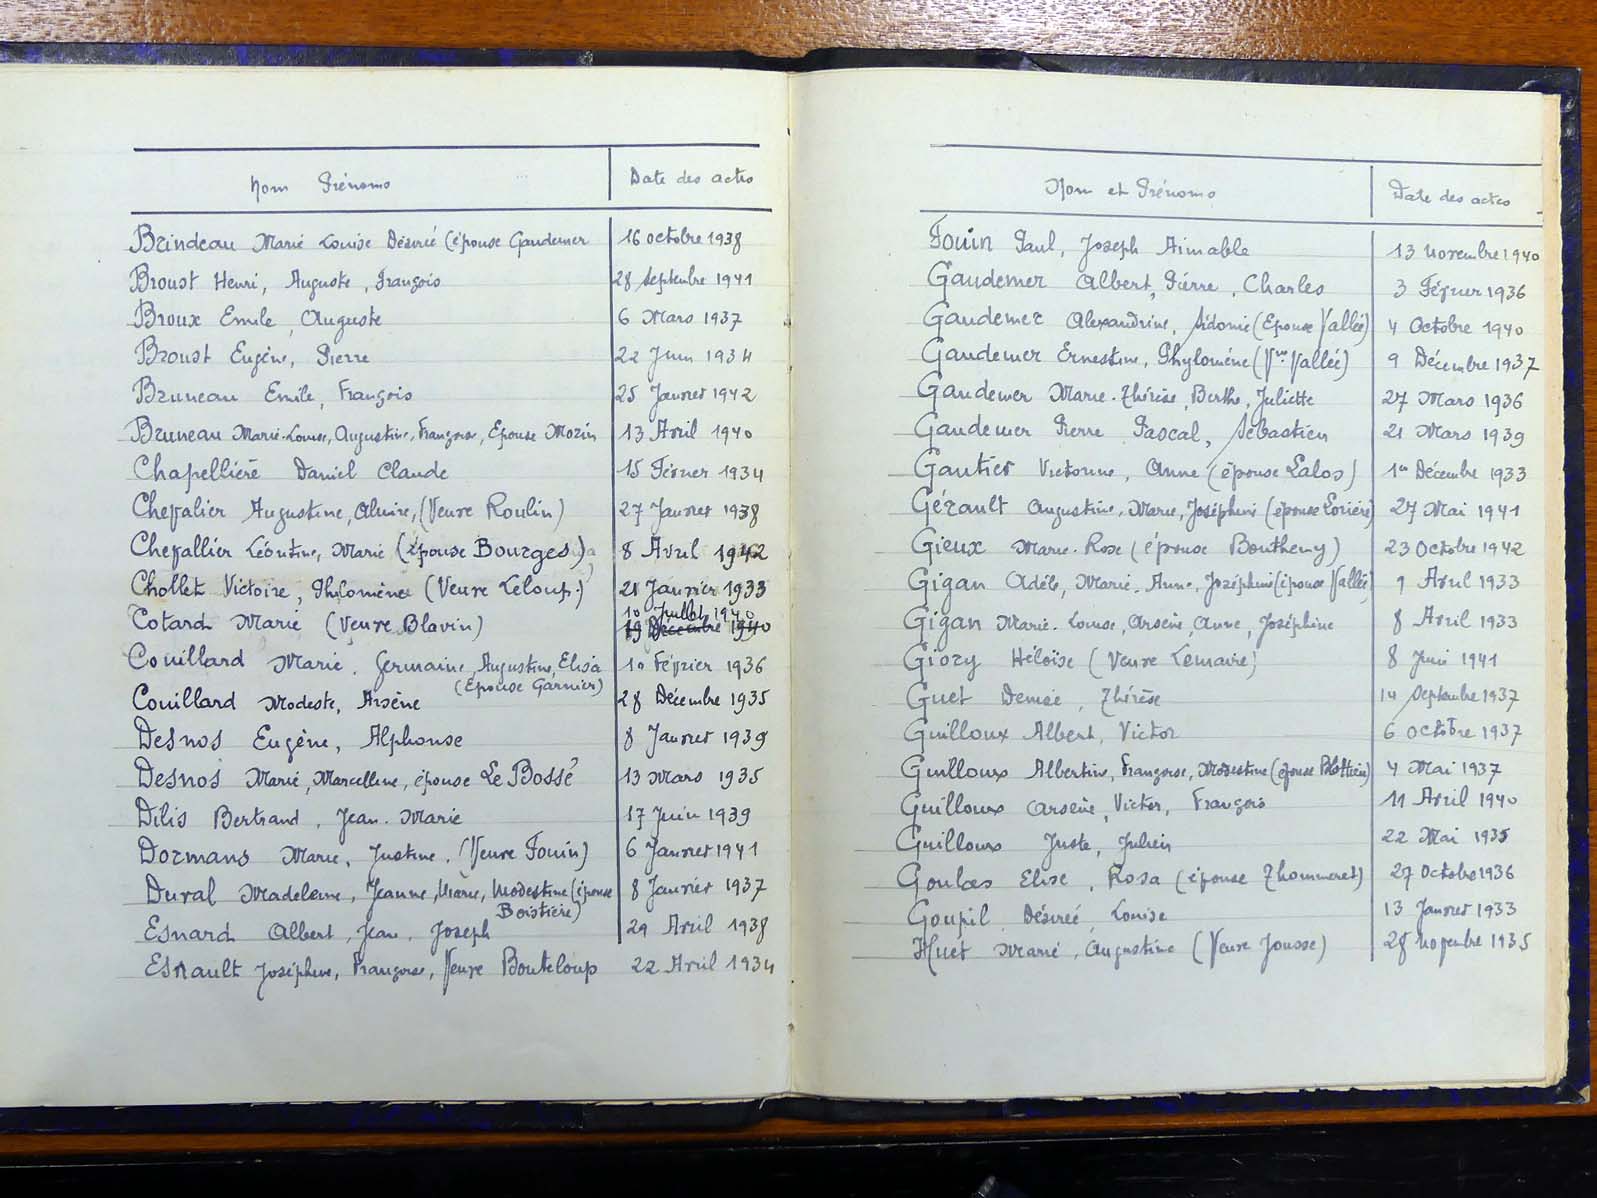 Nom Prénoms Date des actes
Brindeau Marie Louise Désirée (épouse Gaudemer 16 octobre 1938
Broust Henri, Auguste, François 28 Septembre 1941
Broux Emile, Auguste 6 Mars 1937
Broust Eugène, Pierre 22 Juin 1934
Bruneau Emile, François 25 Janvier 1942
Bruneau Marie-Louise, Augustine, Françoise, Epouse Morin 13 Avril 1940
Chapellière Daniel Claude 15 Février 1934
Chevalier Augustine, Alvire, (Veuve Roulin) 27 Janvier 1938
Chevallier Léontine, Marie (épouse Bourges) 8 Avril 1942
Chollet Victoire, Philomène (Veuve Leloup.) 21 Janvier 1933
10 Juillet 1940
Cotard Marie (Veuve Blavin) 19 Décembre 1940
Couillard Marie. Germaine, Augustine, Elisa 10 Février 1936
(Epouse Garnier)
Couillard Modeste, Arsène 28 Décembre 1935
Desnos Eugène, Alphonse 8 Janvier 1939
Desnos Marie, Marcelline, épouse Le Bossé 13 Mars 1935
Dilis Bertrand, Jean-Marie 17 Juin 1939
Dormans Marie, Justine, (Veuve Fouin) 6 Janvier 1941
Duval Madeleine, Jeanne, Marie, Modestine (épouse 8 Janvier 1937
Boistière)
Esnard Albert, Jean, Joseph 29 Avril 1938
Esnault Joséphine, Françoise, Veuve Bouteloup 22 Avril 1934
Nom et Prénoms Date des actes
Fouin Paul, Joseph Aimable 13 novembre 1940
Gaudemer Albert, Pierre, Charles 3 Février 1936
Gaudemer Alexandrine, Sidonie (Epouse Vallée) 4 Octobre 1940
Gaudemer Ernestine, Phylomène (Vve Vallée) 9 Décembre 1937
Gaudemer Marie-Thérèse, Berthe, Juliette 27 Mars 1936
Gaudemer Pierre Pascal, Sébastien 21 Mars 1939
Gautier Victorine, Anne (épouse Lalos) 1er Décembre 1933
Gérault Augustine, Marie, Joséphine (épouse Lorière) 27 Mai 1941
Gieux Marie-Rose (épouse Bouthemy) 23 Octobre 1942
Gigan Adèle, Marie-Anne, Joséphine (épouse Vallée) 9 Avril 1933
Gigan Marie-Louise, Arsène, Anne, Joséphine 8 Avril 1933
Giozy Héloïse (Veuve Lemaire) 8 Juin 1941
Guet Denise, Thérèse 14 Septembre 1937
Guilloux Albert, Victor 6 Octobre 1937
Guilloux Albertine, Françoise, Modestine (épouse 4 Mai 1937
Guilloux Arsène, Victor, François 11 Avril 1940
Guilloux Juste, Julien 22 Mai 1935
Goulas Elise, Rosa (épouse Thommeret) 27 Octobre 1936
Goupil Désirée, Louise 13 Janvier 1933
Huet Marie, Augustine (Veuve Jousse) 28 Novembre 1935